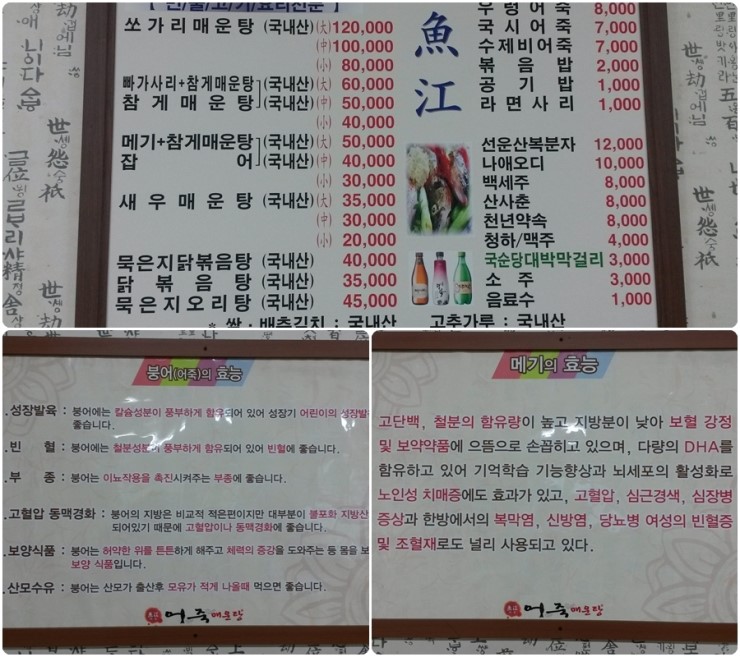 쏘가리매운탕 (大)120,000
(中)100,000
(小) 80,000
빠가사리+참게매운탕 (국내산)(大) 60,000
참게매운탕 (국내산)(中) 50,000
(小) 40,000
메기+참게매운탕 (국내산)(大) 50,000
잡 어 (국내산)(中) 40,000
(小) 30,000
새우매운탕 (국내산)(大) 35,000
(中) 30,000
(小) 20,000
묵은지닭볶음탕 (국내산) 40,000
닭볶음탕 (국내산) 35,000
묵은지오리탕 (국내산) 45,000
* 쌀·배추김치 : 국내산 고추가루 : 국내산
魚江
우렁어죽 8,000
국시어죽 7,000
수제비어죽 7,000
볶음밥 2,000
공기밥 1,000
라면사리 1,000
선운산복분자 12,000
나애오디 10,000
백세주 8,000
산사춘 8,000
천년약속 8,000
청하/맥주 4,000
국순당대박막걸리 3,000
소 주 3,000
음료수 1,000
붕어(어죽)의 효능
성장발육 : 붕어에는 칼슘성분이 풍부하게 함유되어 있어 성장기 어린이의 성장발육
좋습니다.
빈 혈 : 붕어에는 철분성분이 풍부하게 함유되어 있어 빈혈에 좋습니다.
부 종 : 붕어는 이뇨작용을 촉진시켜주는 부종에 좋습니다.
고혈압 동맥경화 : 붕어의 지방은 비교적 적은편이지만 대부분이 불포화 지방산
되어있기 때문에 고혈압이나 동맥경화에 좋습니다.
보양식품 : 붕어는 허약한 위를 튼튼하게 해주고 체력의 증강을 도와주는 등 몸을 보
보양 식품입니다.
산모수유 : 붕어는 산모가 출산후 모유가 적게 나올때 먹으면 좋습니다.
어죽매운탕
메기의 효능
고단백, 철분의 함유량이 높고 지방분이 낮아 보혈 강정
및 보약약품에 으뜸으로 손꼽히고 있으며, 다량의 DHA를
함유하고 있어 기억학습 기능향상과 뇌세포의 활성화로
노인성 치매증에도 효과가 있고, 고혈압, 심근경색, 심장병
증상과 한방에서의 복막염, 신방염, 당뇨병 여성의 빈혈증
및 조혈재로도 널리 사용되고 있다.
어죽매운탕